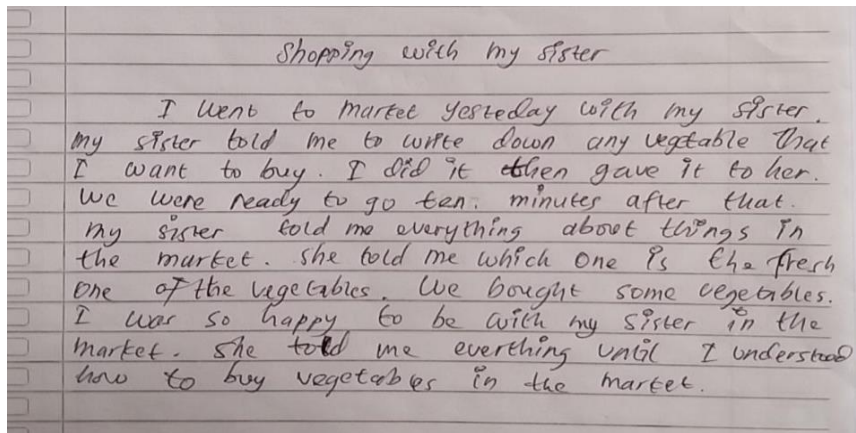 Shopping with my sister
I went to market yesteday with my sister.
my sister told me to write down any vegtable that
I want to buy. I did it then gave it to her.
We were ready to go ten. minutes after that.
my sister told me everything about things in
the market. she told me which one is the fresh
one of the vegetables. We bought some vegetables.
I was so happy to be with my sister in the
market. She told me everthing until I understood
how to buy vegetables in the market.